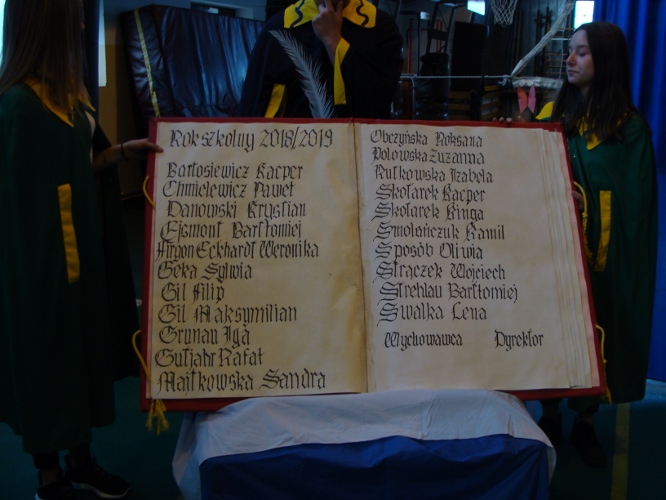 Rok szkolny 2018/2019
Bartosiewicz Kacper
Chmielewicz Paweł
Danowski Krystian
Ejsmont Bartłomiej
Firgon Eckhardt Weronika
Geka Sylwia
Gil Filip
Gil Maksymilian
Grynau Iga
Gutjahr Rafał
Majtkowska Sandra
Obczyńska Roksana
Polowska Zuzanna
Rutkowska Izabela
Skotarek Kacper
Skotarek Kinga
Smolańczuk Kamil
Sposób Oliwia
Strączek Wojciech
Strehlau Bartłomiej
Swałka Lena
Wychowawca Dyrektor